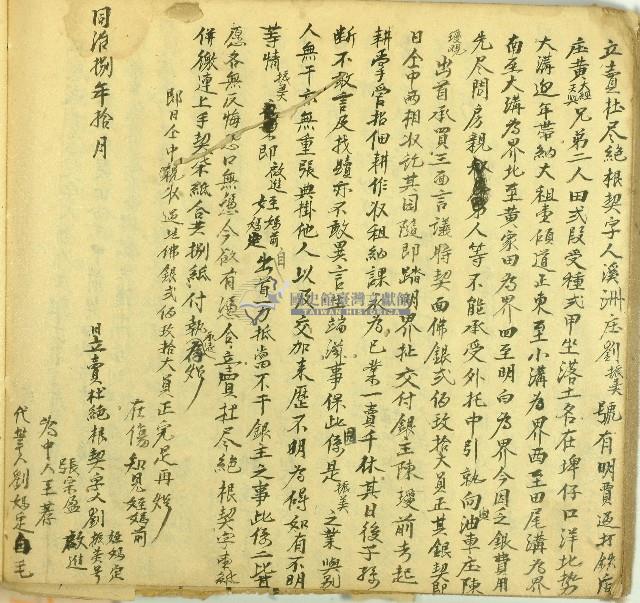 立賣杜尽絕根契字人溪洲庄劉振美號有明買過打鉄庄
庄黃大組天與兄弟二人田弍段受種弍甲坐落土名在埤仔口洋北勢
大溝近年帶納大租壹傾道正東至小溝為界西至田尾溝為界
南至大溝為界北至黃家田為界四至明白為界今因乏銀費用
先尽問房親人等不能承受外托中引就向油車庄陳
璦觀出首承買三面言議時契面佛銀弍佰玖拾大員正其銀契即
日仝中兩相收訖其田隨即踏明界址交付銀主陳璦前去起
耕掌管招佃耕作收租納課永為己業一賣千休其日後子孫
断不敢言及找贖亦不敢異言生端滋事保此田係是振美之業與別
人無干亦無重張典掛他人以及交加來歷不明為碍如有不明
等情振美即啟進姪媽前媽定自出首力抵當不干銀主之事此係二比甘
愿各無反悔恐口無憑今欲有憑合立賣杜尽絕根契字壹紙
併繳連上手契柒紙合共捌紙付執存炤
即日仝中親收過是佛銀弍佰玖拾大員正完足再炤
在傷知見姪媽前
姪媽定
啟進
日立賣杜絕根契字人劉振美号
張宗盈
為中人王荐
代筆人劉媽定自毛
同治捌年拾月
國史館臺灣文獻館
TAIWAN HISTORICA